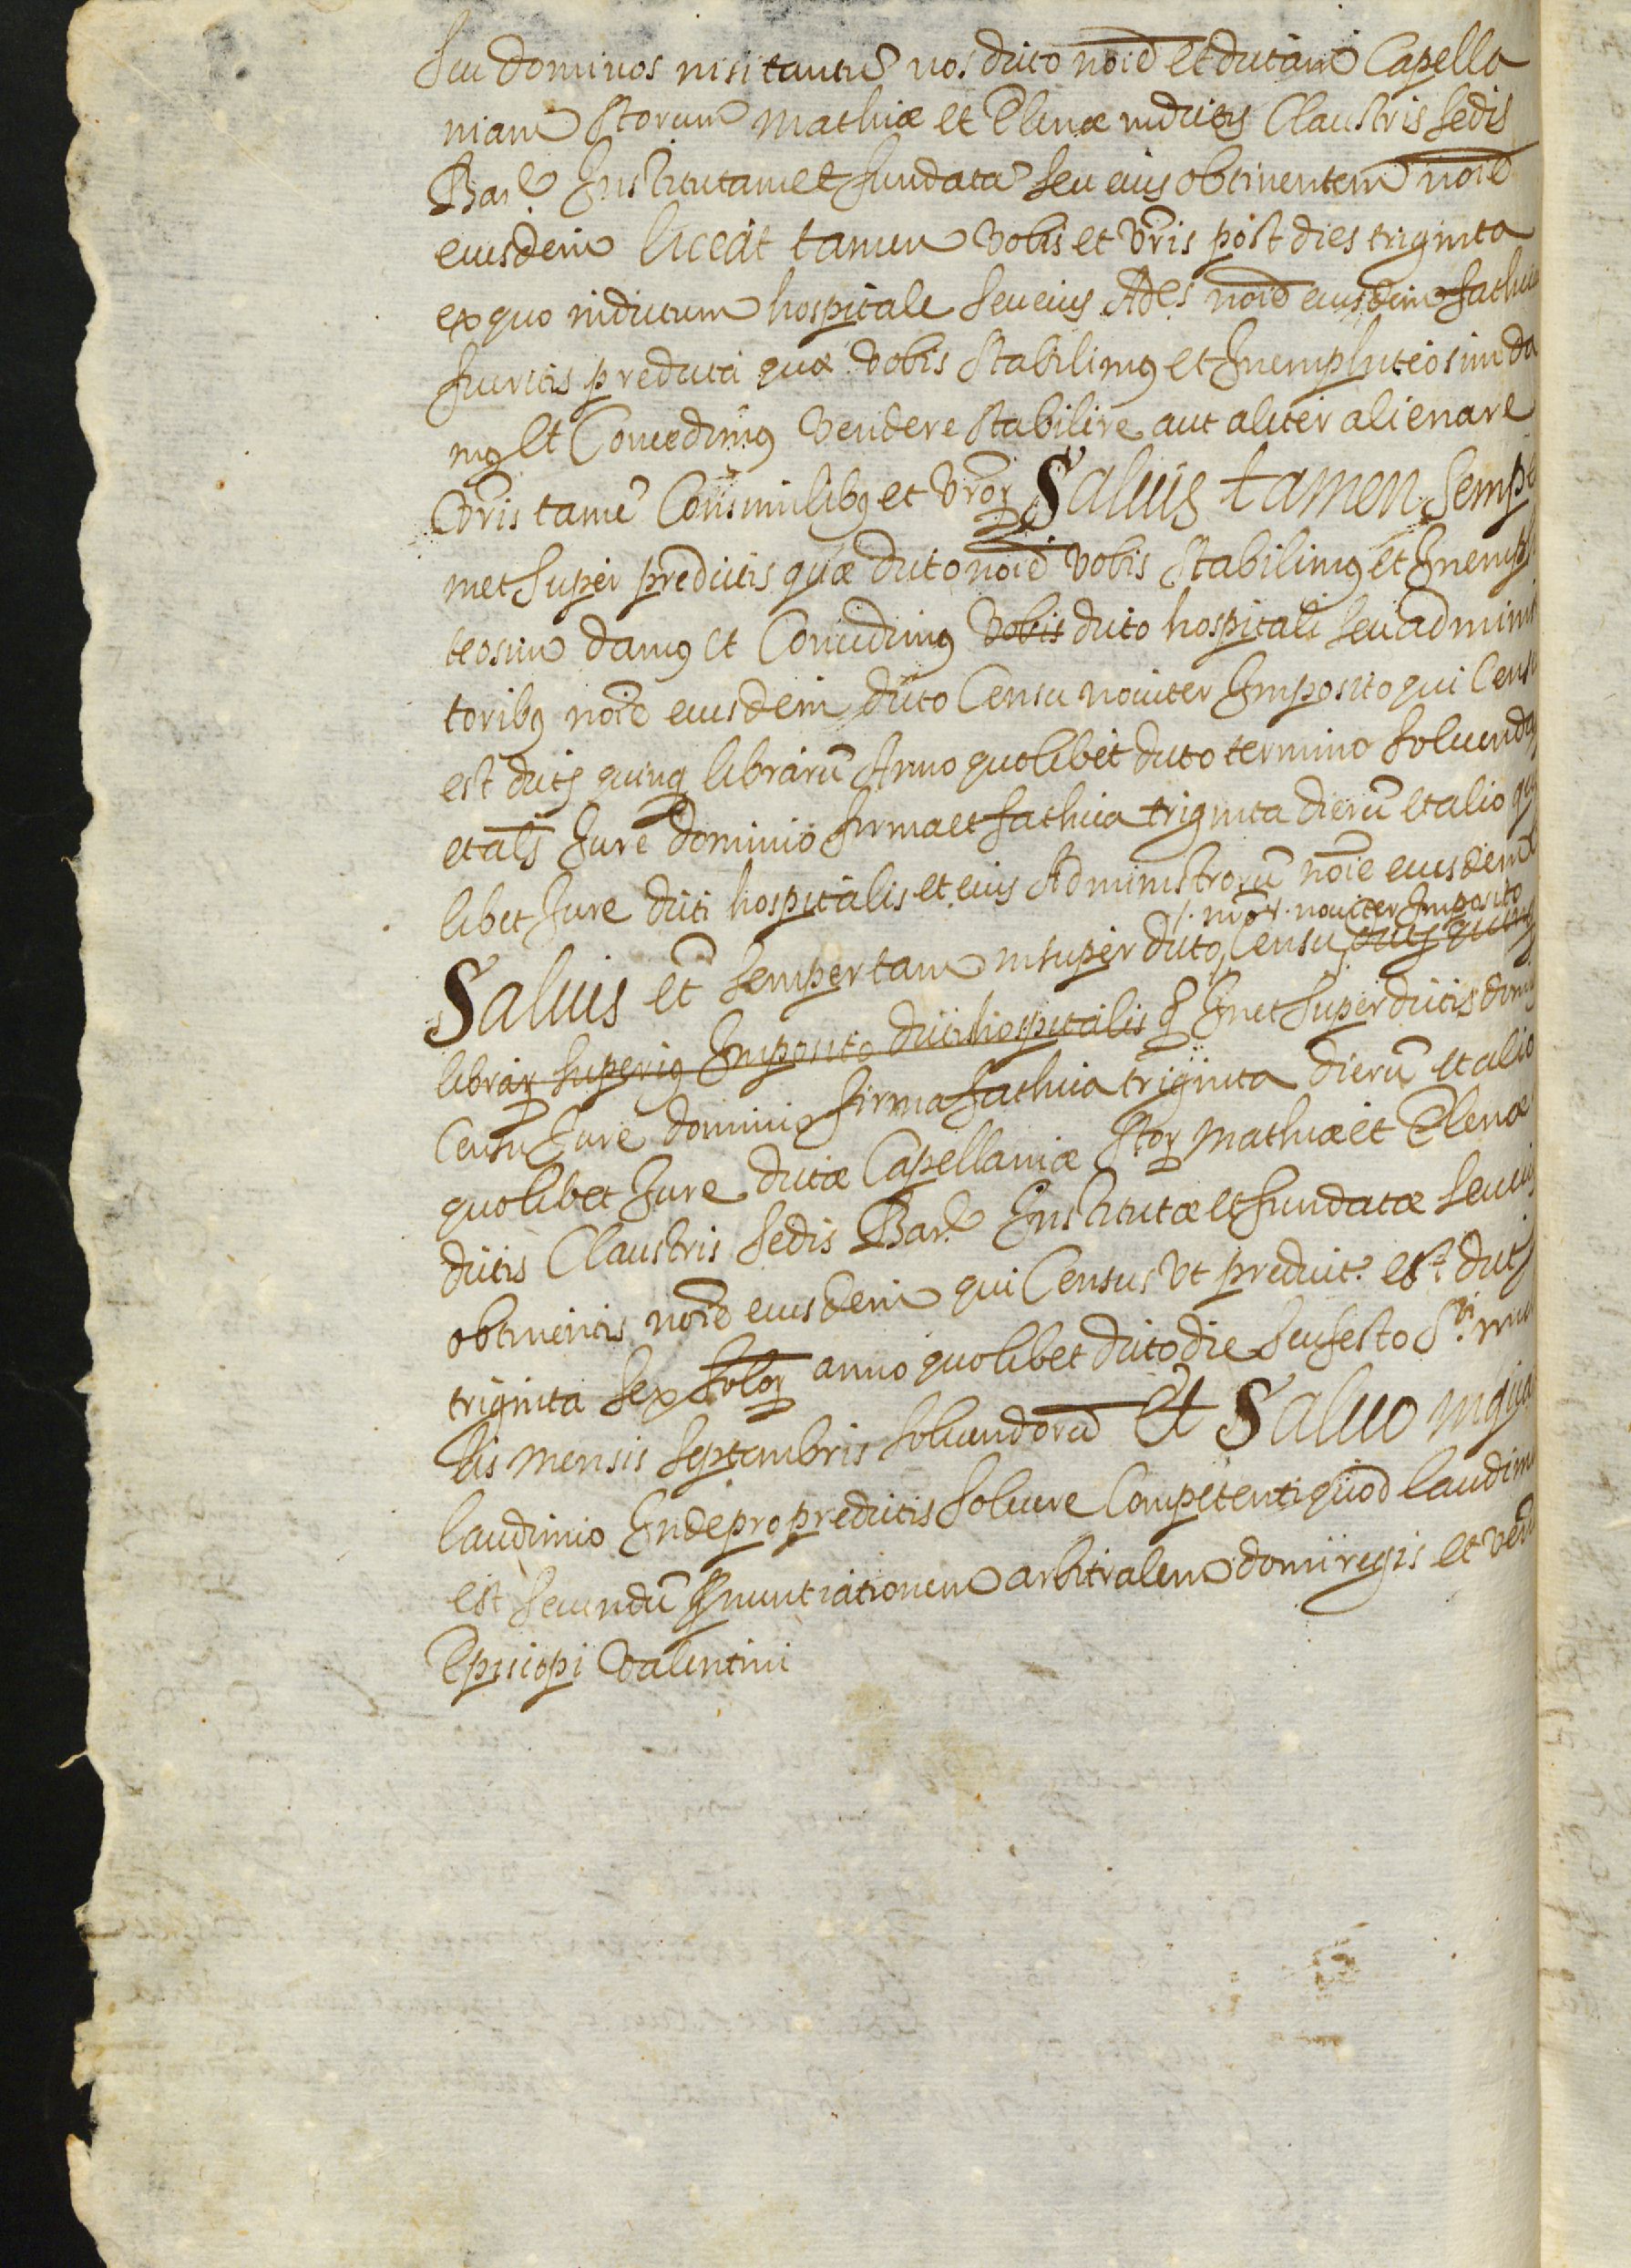 seu dominos nisi tantū nos dicto noīe et dictam Capella
niam Storum Mathiæ et Elenæ in dictis Claustris sedis
Barᵉ Institutam et fundatā seu eius obtinentem noīe
eiusdem liceat tamen vobis et vr̄is post dies triginta
ex quo in dictum hospitale seu eius Adˢ noīe eiusdem fathica
fueritis predicta quæ vobis stabilimꝰ et Inemphiteosim da
mꝰ et Concedimꝰ vendere stabilire aut aliter alienare
vr̄is tamē Consimilibꝰ et vror̄ Saluis tamen semp
met super predictis quæ dicto noīe vobis stabilimꝰ et Inemphi
teosim damꝰ et Concedimꝰ vobis dicto hospitali seu adminis
toribꝰ noīe eiusdem dicto Censu nouiter Imposito qui Censu
est dictꝝ quinqꝫ librarū Anno quolibet dicto termino soluendꝝ
et als̄ Jure dominio firma et fathica triginta dierū et alio quo
libet Jure dicti hospitalis et eius Administrorū noīe eiusdem
./. nrōꝝ. nouiter Imposito
Saluis et̄ semper tam insuper dicto Censu dictꝝ quinqꝫ
librarꝝ superiꝰ Imposito dicti hospitalis ꝙ Inet super dictis domꝰ
Censu Jure dominio firma fathica triginta dierū et alio
quolibet Jure dictæ Capellaniæ Storꝝ Mathiæ et Elenæ
dictis Claustris sedis Barᵉ Institutæ et fundatæ seu eiꝰ
obtinentis noīe eiusdem qui Census vt predicit. est dictꝝ
triginta sex solorꝝ anno quolibet dicto die seu festo Sᵗⁱ mic
lis mensis septembris soluendorū Et Saluo inqua
laudimio Inde pro predictis soluere Competenti quod laudimi
est secundū ꝓnuntiationem arbitralem domi regis et ven
Episcopi Valentini